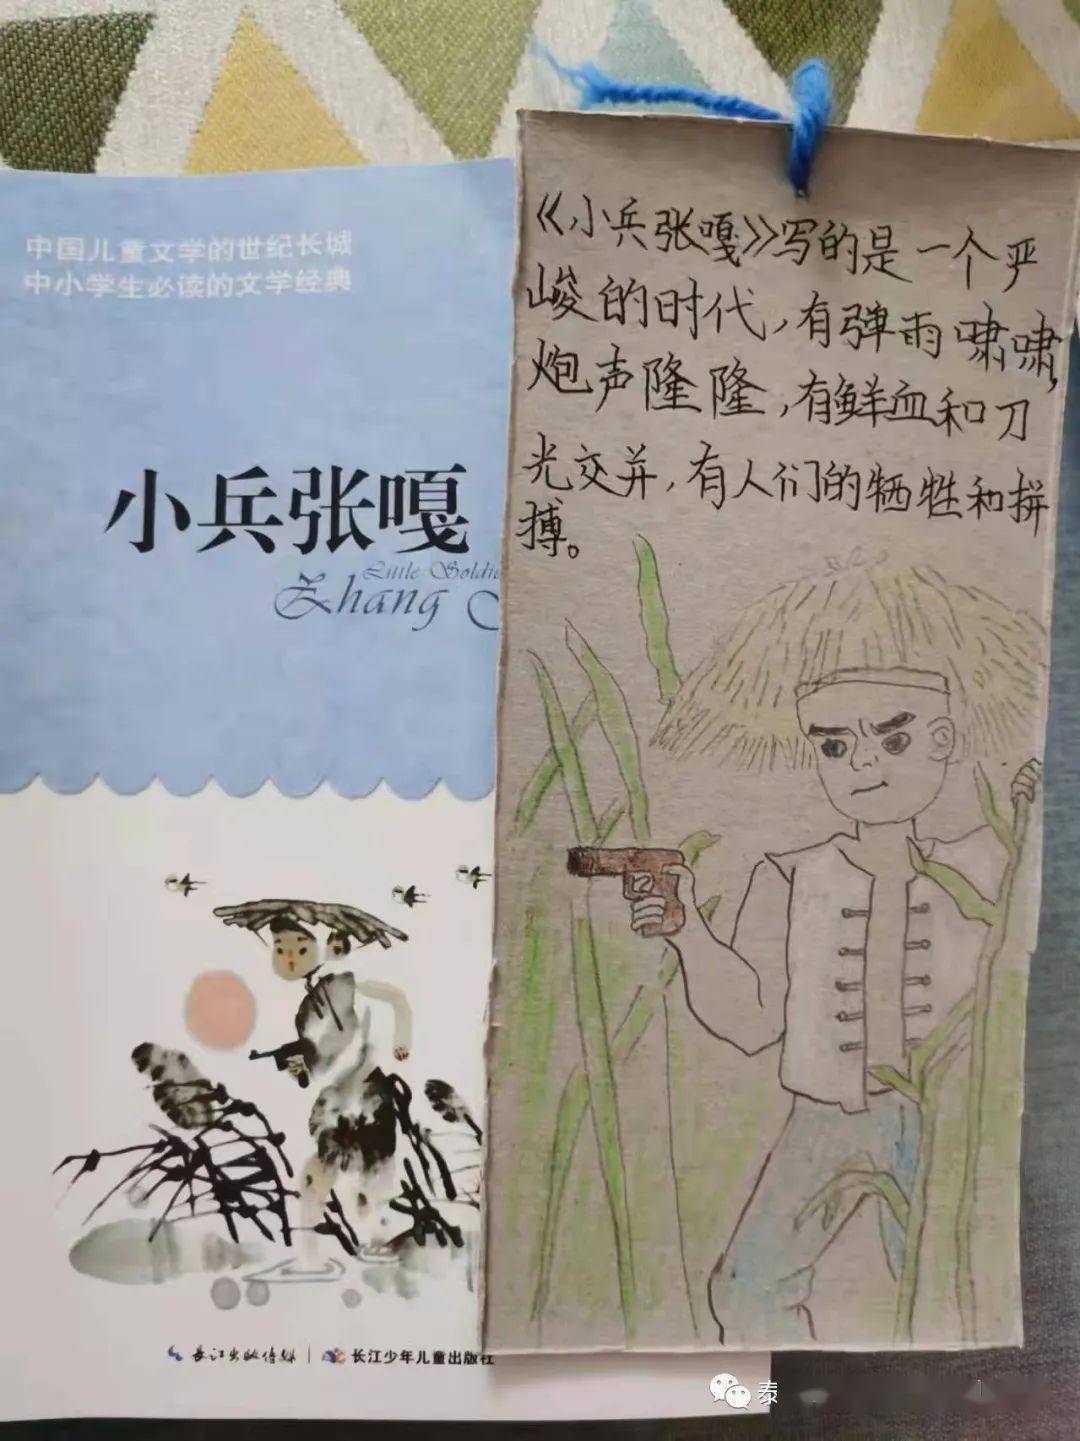 中国儿童文学的世纪长城
中小学生必读的文学经典
小兵张嘎
Little Soldie
Zhang
长江出版传媒
长江少年儿童出版社
《小兵张嘎》写的是一个严
峻的时代,有弹雨啸啸,
炮声隆隆,有鲜血和刀
光交并,有人们的牺牲和拼
搏。
泰